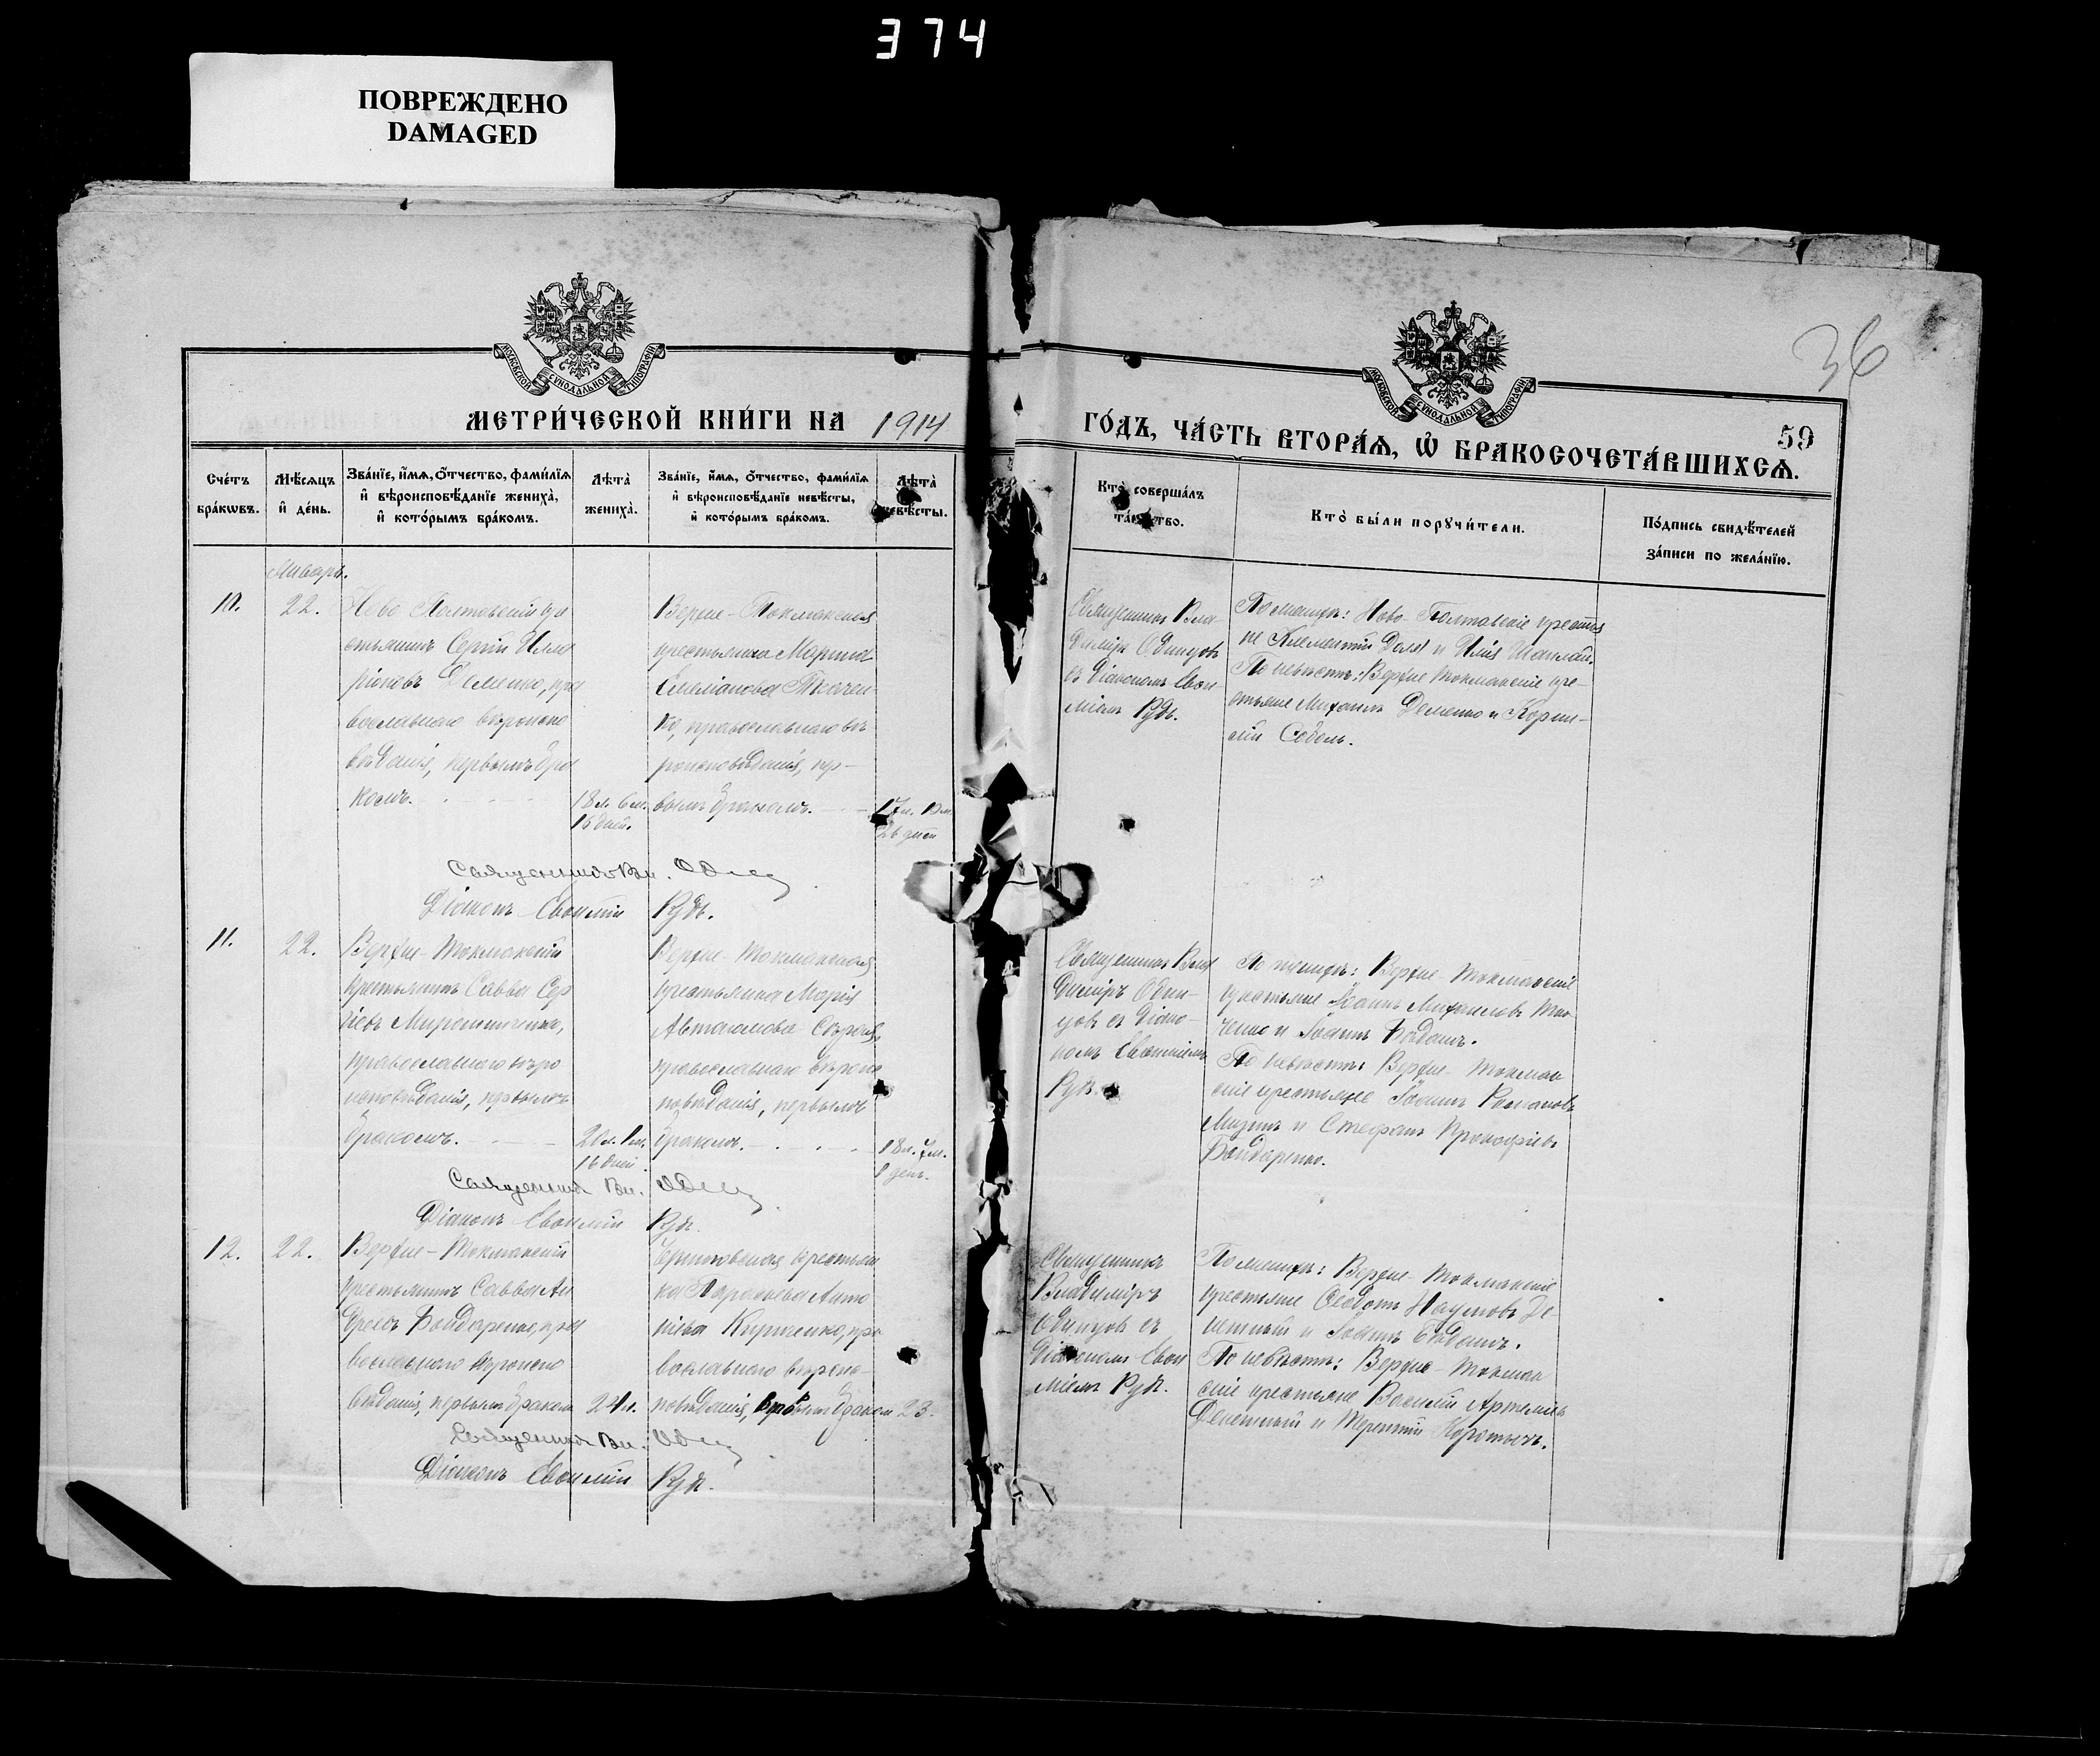 374
ПОВРЕЖДЕНО
DAMAGED
36
МОСКОВСКОЙ СѴНОДАЛЬНОЙ ТИПОГРАФІИ
МОСКОВСКОЙ СѴНОДАЛЬНОЙ ТИПОГРАФІИ
МЕТРИ́ЧЕСКОЙ КНИ́ГИ НА 1914
ГО́ДЪ, ЧА́СТЬ ВТОРА́Ѧ, Ѽ БРАКОСОЧЕТА́ВШИХСѦ.
59
Сче́тъ бра́кѡвъ.
Мѣ́сѧцъ и҆ де́нь.
Зва́нїе, и҆́мѧ, ѻ҆́тчество, фами́лїѧ и҆ вѣроисповѣ́данїе жениха̀, и҆ кото́рымъ бра́комъ.
Лѣта̀ жениха̀.
Зва́нїе, и҆́мѧ, ѻ҆́тчество, фами́лїѧ и҆ вѣроисповѣ́данїе невѣ́сты, и҆ кото́рымъ бра́комъ.
Лѣта̀ невѣ́сты.
Кто̀ соверша́лъ та́инство.
Кто̀ бы́ли порꙋчи́тели.
По́дпись свидѣ́телей за́писи по жела́нїю.
Январь.
10.
22.
Ново-Полтавскій кре
стьянинъ Сергій Илла
ріоновъ Деменко, пра
вославнаго вѣроиспо
вѣданія, первымъ бра
комъ.
18 л. 6 м.
15 дней.
Верхне-Токмакская
крестьянка Марина
Емеліанова Ткачен-
ко, православнаго вѣ
роисповѣданія, пер-
вымъ бракомъ.
17 л.
26 дней
Священникъ Вла
диміръ Одинцовъ
съ діакономъ Евѳи
міемъ Рудь.
По женихѣ: Ново-Полтавскіе крестья
не Климентій Доля и Илія
По невѣстѣ: Верхне Токмакскіе кре-
стьяне Михаилъ Деменко и Корни-
лій Соболь.
Священникъ Вл. Один
Діаконъ Евѳимій Рудь.
11.
22.
Верхне-Токмакскій
крестьянинъ Савва Сер
гіевъ Мирошниченко,
православнаго вѣро
исповѣданія, первымъ
бракомъ.
20 л. 1 м.
16 дней.
Верхне-Токмакская
крестьянка Марія
Автономова
православнаго вѣроис
повѣданія, первымъ
бракомъ.
18 л. 7 м.
1 день.
Священникъ Вла
диміръ Один-
цовъ съ діако-
номъ Евѳиміемъ
Рудь.
По женихѣ: Верхне-Токмакскіе
крестьяне Іоаннъ Михаиловъ Тка
ченко и Іоаннъ Бѣданъ.
По невѣстѣ: Верхне-Токмак
скіе крестьяне Іоаннъ Романовъ
и Стефанъ Прокофіевъ
Бондаренко.
Священникъ Вл. Один
Діаконъ Евѳимій Рудь.
12.
22.
Верхне-Токмакскій
крестьянинъ Савва Ан
дреевъ Бондаренко, пра
вославнаго вѣроиспо
вѣданія, первымъ бракомъ
24 л.
Черниговская крестьян
ка Параскева Анто
ніева Кириченко, пра
вославнаго вѣроис-
повѣданія, первымъ бракомъ
23.
Священникъ
Владиміръ
Одинцовъ съ
діакономъ Евѳи
міемъ Рудь.
По женихѣ: Верхне-Токмакскіе
крестьяне Ѳеодотъ Наумовъ Де-
нежный и Іоаннъ Бѣданъ.
По невѣстѣ: Верхне-Токмак
скіе крестьяне Василій Артемьевъ
Денежный и Терентій
Священникъ Вл. Один
Діаконъ Евѳимій Рудь.